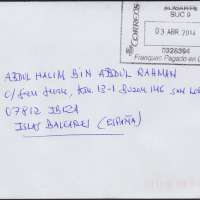 ALICANTE
SUC 9
CORREOS
03 ABR 2014
0326394
Franqueo Pagado en O
ABDUL HALIM BIN ABDUL RAHMAN
C/ San Juan, Km. 13-1 Buzon 146 SAN LOR
07812 IBIZA
ISLAS BALEARES (ESPAÑA)